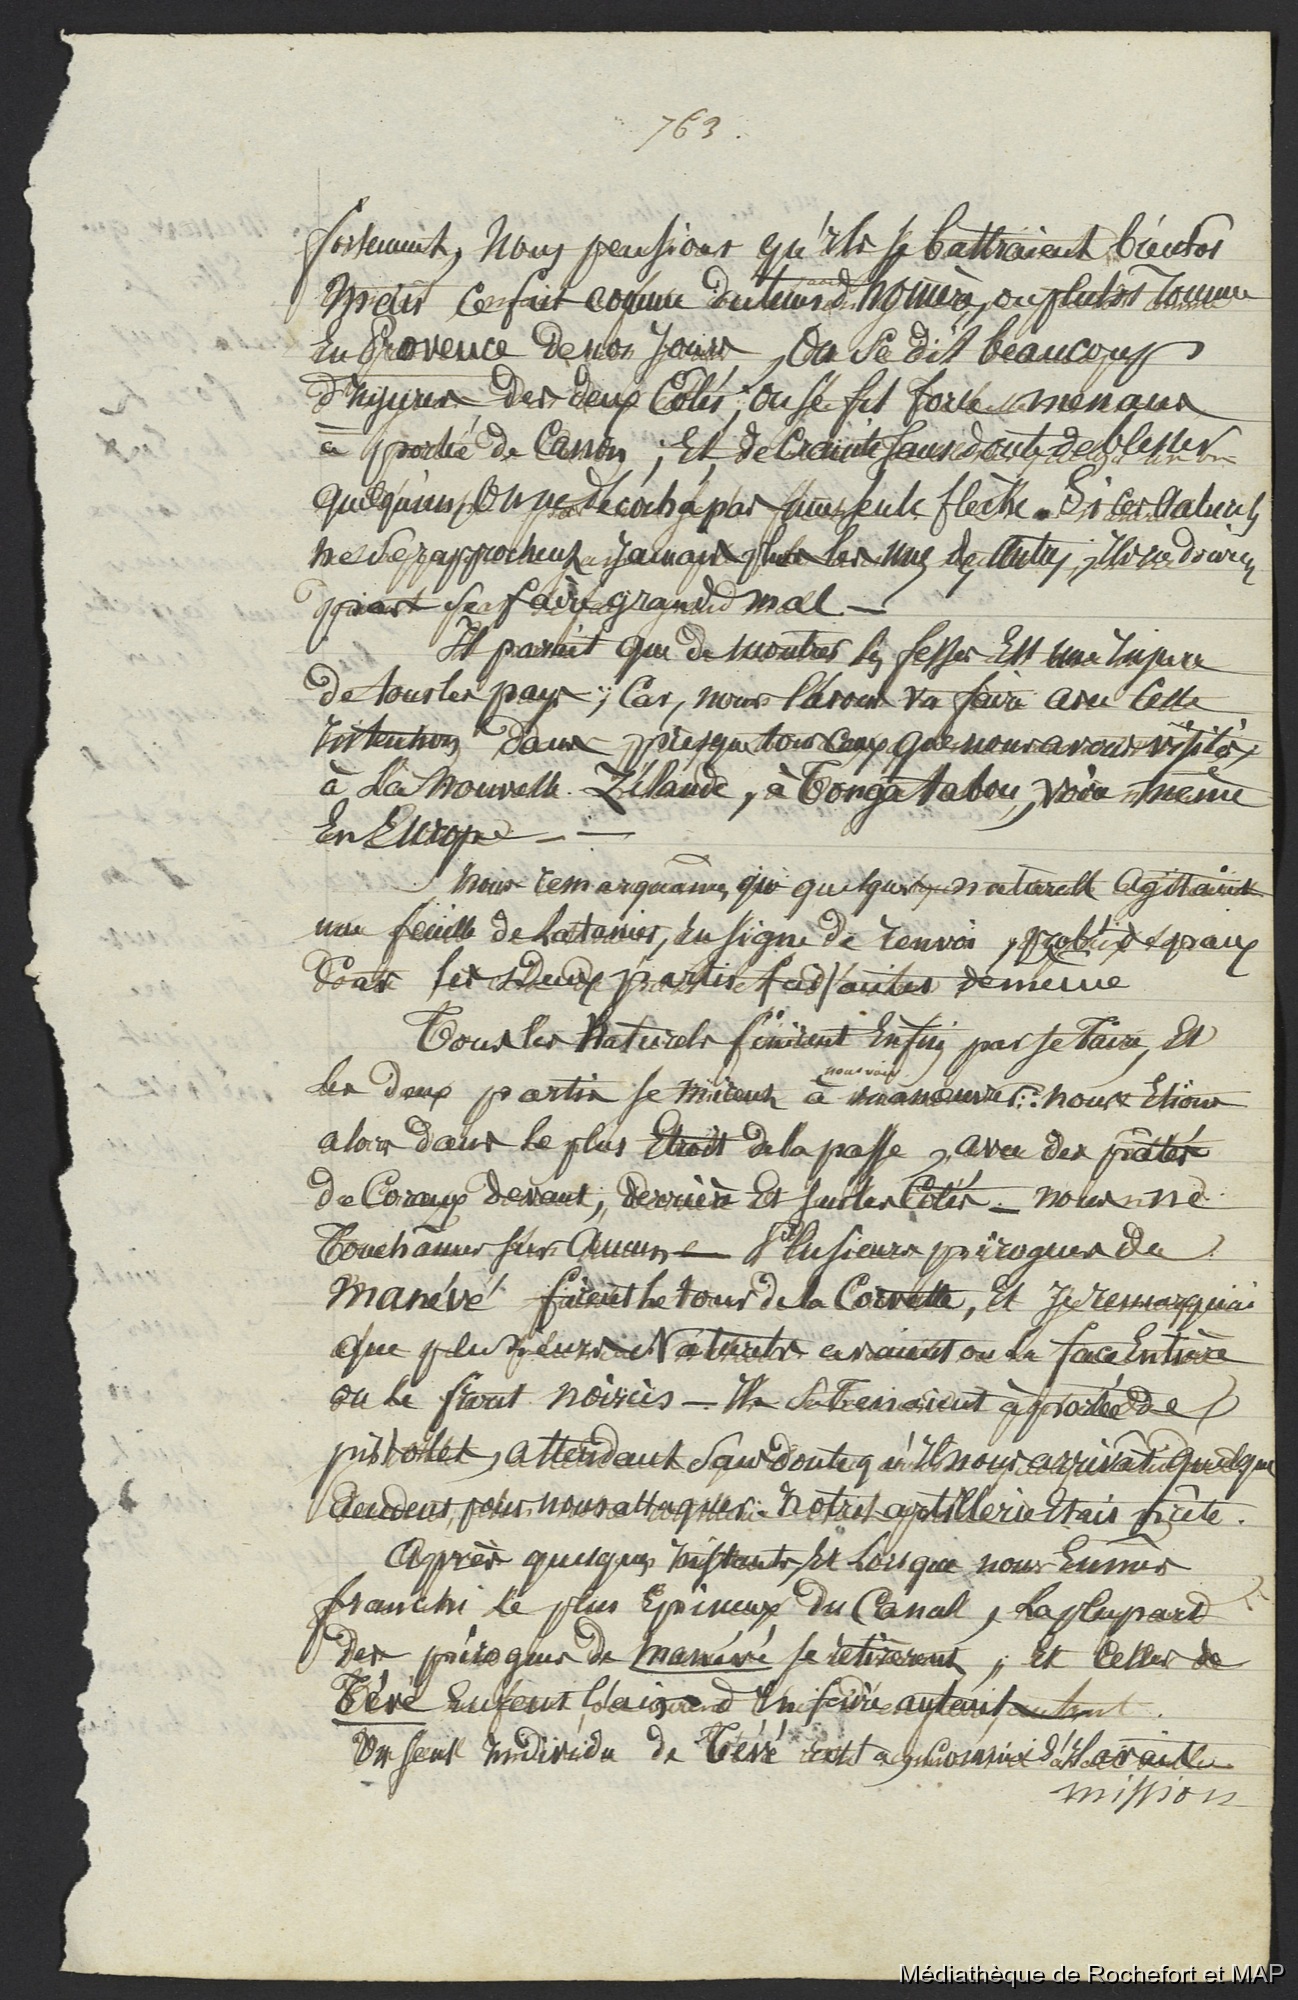 763.
fortement, Nous pensions qu'ils se battraient bientot
Mais ce fait comme du tems d'homère, ou plutot comme
En Provence de nos Jours, On se dit beaucoup
d'injures des deux Cotés; on se fit force menaces
à portée de Canon; Et de Crainte sans doute de blesser
quelqu'un, On ne décocha pas une seule flèche. Si ces Naturels
ne se rapprochent Jamais plus les uns des autres, Ils ne doivent
pas se faire grand mal. —
Il parait que de montrer les fesses Est une injure
de tous les pays; Car, nous l'avons vu faire avec Cette
Intention dans presque tous Ceux que nous avons visités,
à la Nouvelle Zélande, à Tonga tabou, voire même
En Europe — —
Nous remarquames que quelques naturels agitaient
une feuille de latanier, en signe de
les deux partis
Tous les Naturels finirent Enfin par se Taire, Et
les deux partis se mirent à nous voir
manoeuvrer: nous Etions
alors dans le plus Etroit de la passe, avec des patés
de Coraux devant, derrière Et sur les Cotés — nous ne
Touchames sur Aucun — Plusieurs pirogues de
Manévé firent le tour de la Corvette, Et Je remarquai
que plusieurs Naturels avaient ou la face Entière
ou le front noircis — Ils se Tenaient à portée de
pistolet, attendant sans doute qu'Il nous arrivat quelque
accident, pour nous attaquer. Notre artillerie Etait prête.
Après quelques Instants, Et Lorsque nous Eumes
franchi le plus Epineux du Canal, La plupart
des pirogues de Manévé se retirèrent, Et Celles de
Tévé
Un seul individu de Tévé resta, Comme s'Il avait
mission
Médiathèque de Rochefort et MAP